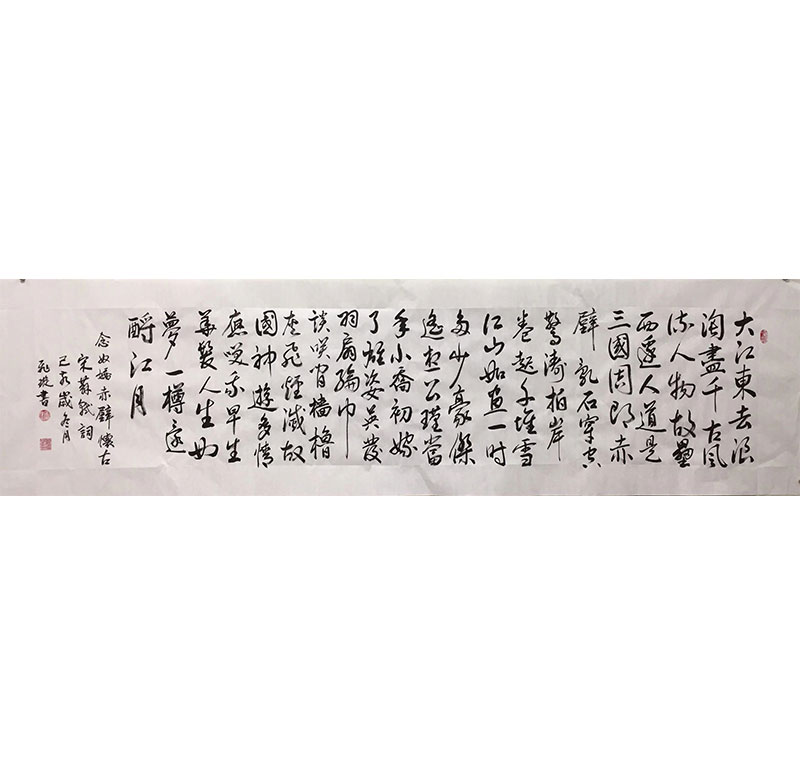 大江東去浪
淘盡千古風
流人物故壘
西邊人道是
三國周郎赤
壁亂石穿空
驚濤拍岸
卷起千堆雪
江山如畫一時
多少豪傑
遙想公瑾當
年小喬初嫁
了雄姿英發
羽扇綸巾
談笑間檣櫓
灰飛煙滅故
國神遊多情
應笑我早生
華髮人生如
夢一樽還
酹江月
念奴嬌赤壁懷古
宋蘇軾詞
己亥歲冬月
書